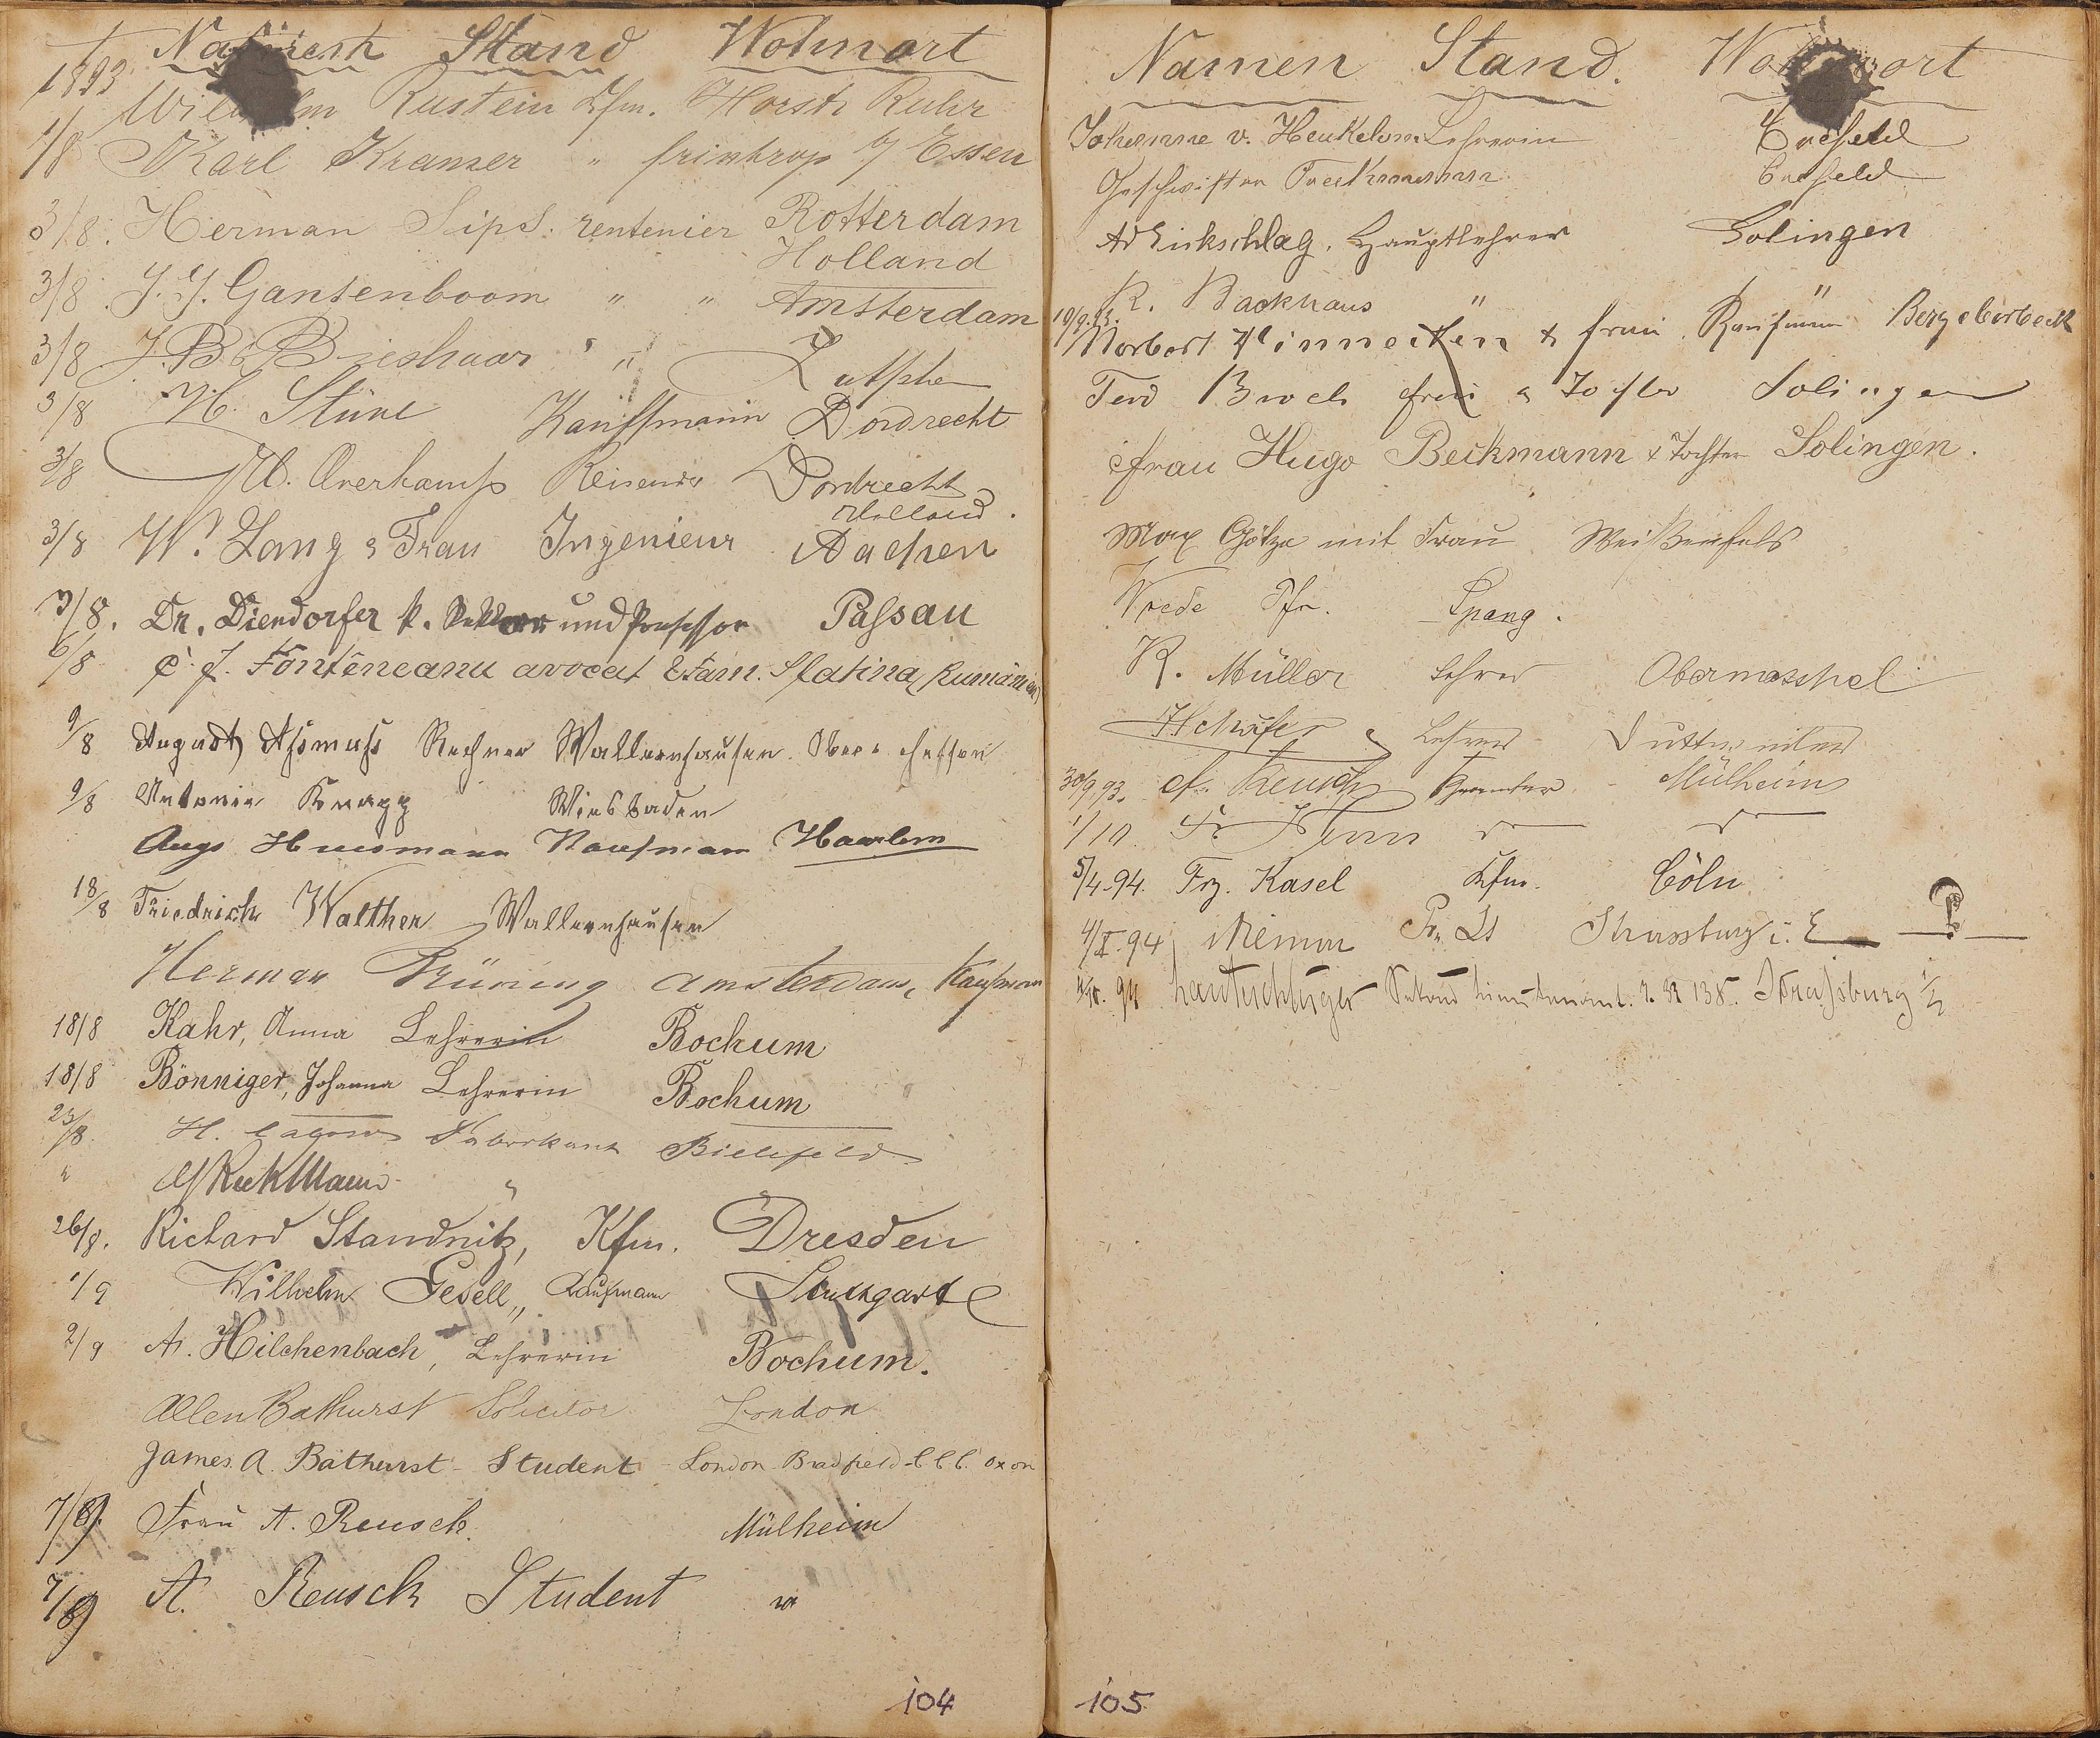 Namen Stand Wohnort
1893
Wilhelm Rustein Kfm. Horst Ruhr
1/8 Karl Kramer " Frintrop b/ Essen
3/8. Herman Sips. rentenier Rotterdam
Holland
3/8. J. J. Gantenboom " " Amsterdam
3/8 J. B. Brieshaar " " Zutphen
3/8 H. Stüve Kauffmann Dordrecht
3/8 M. Overkamp Reisender Dordrecht
Holland.
3/8 W. Lang & Frau Ingenieur Aachen
3/8. Dr. Diendorfer k. Rektor und Professor Passau
6/8 C. J. Fonteneanu avocat & fam. Slatina (Rumänien)
9/8 August Assmuss Rechner Wallernhausen Oberhessen
9/8 Antonie Knapp Wiesbaden
Augs Huismann Kaufmann Haarlem
18/8 Friedrich Walther Wallernhausen
Herman Brüning Amsterdam, Kaufman
18/8 Kahr, Anna Lehrerin Bochum
18/8 Bönniger, Johanna Lehrerin Bochum
23/8. H. Fabrikant Bielefeld
" "
26/8. Richard Standnitz, Kfm. Dresden
1/9 Wilhelm Gesell, Kaufmann Stuttgart
2/9 A. Hilchenbach, Lehrerin Bochum.
Allen Bathurst Solicitor London
James A. Bathurst - Student - London Bradfield - C.C.C. Oxon
7/9. Frau A. Reusch. Mülheim
7/9 A. Reusch Student "
104
Namen Stand. Wohnort
Johanne v. Heukelom Lehrerin Crefeld
Geschwister Crefeld
Ad Eickschlag, Hauptlehrer Solingen
R. Backhaus " "
10/9.93. Norbert Pinnecken & Frau Kaufmann Bergeborbeck
Ferd Broch Frau & Tochter Solingen
Frau Hugo Beckmann & Tochter Solingen.
Max Götze mit Frau Weißenfels
Wrede Pfr. Spang.
K. Müller Lehrer
Schäfer Lehrer Duttweiler
30/9 93. Reusch Beamter Mülheim
1/10.
5/4-94. Frz. Kasel Kfm. Cöln
4/X.94 Pr. Lt Strassburg i. E
4/X. 94 Lauteschläger Sekond Lieutenant. J. R 138. Straßburg i/E
105